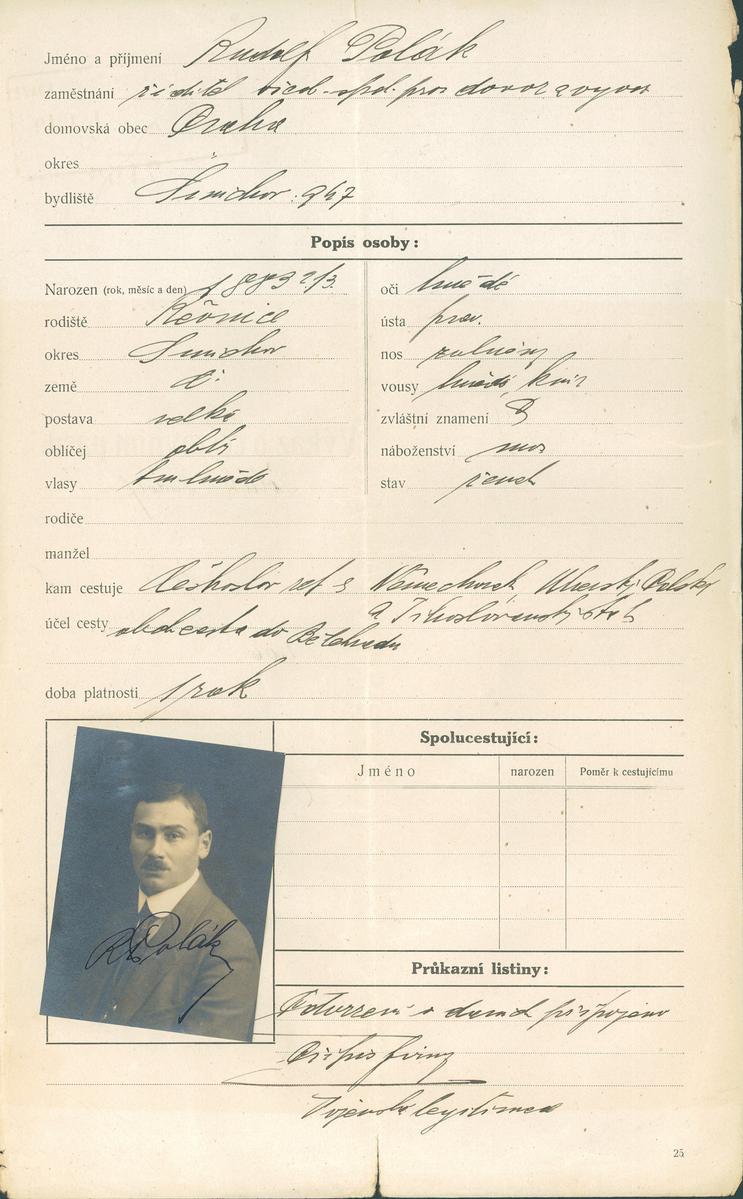 Jméno a příjmení Rudolf Polák
zaměstnání ředitel obch. spol. pro dovoz a vývoz
domovská obec Praha
okres
bydliště Smíchov 947
Popis osoby:
Narozen (rok, měsíc a den) 1883 2/3
oči hnědé
rodiště Řevnice
ústa prav.
okres Smíchov
nos
země Č.
vousy hnědý knír
postava velká
zvláštní znamení
obličej oblý
náboženství mos
vlasy tm hnědé
stav ženat
rodiče
manžel
kam cestuje Českoslov rep s Německrak Uhersky Polsky
a Jihoslovansky stat
účel cesty obch cesta do Bělehradu
doba platnosti 1 rok
Spolucestující:
Jméno
narozen
Poměr k cestujícímu
R Polák
Průkazní listiny:
Potvrzení o daních připojeno
Přípis firmy
Vojenská legitimace
25